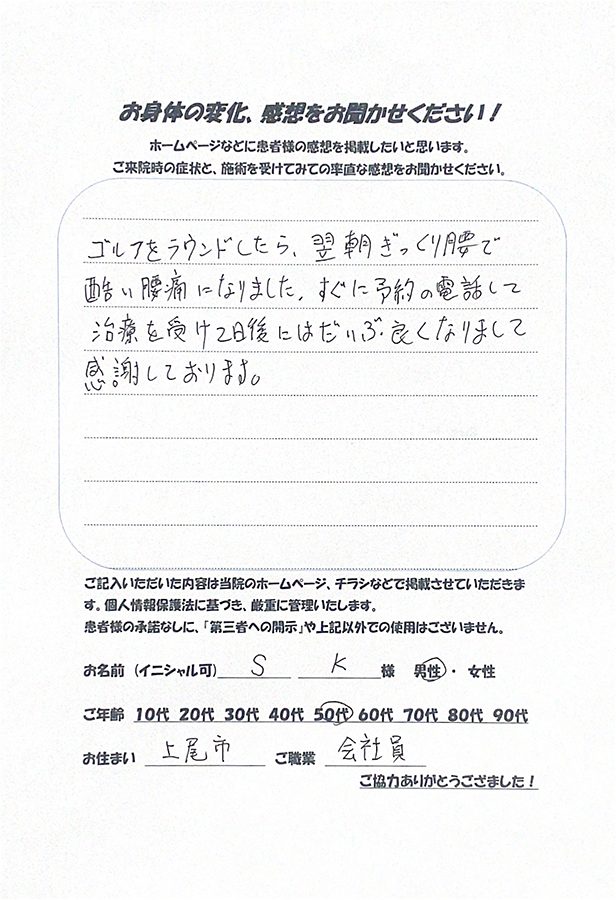 お身体の変化、感想をお聞かせください！
ホームページなどに患者様の感想を掲載したいと思います。
ご来院時の症状と、施術を受けてみての率直な感想をお聞かせください。
ゴルフをラウンドしたら、翌朝ぎっくり腰で
酷い腰痛になりました。すぐに予約の電話して
治療を受け2日後にはだいぶ良くなりまして
感謝しております。
ご記入いただいた内容は当院のホームページ、チラシなどで掲載させていただきま
す。個人情報保護法に基づき、厳重に管理いたします。
患者様の承諾なしに、「第三者への開示」や上記以外での使用はございません。
お名前（イニシャル可） S K 様 男性・女性
ご年齢 10代 20代 30代 40代 50代 60代 70代 80代 90代
お住まい 上尾市 ご職業 会社員
ご協力ありがとうござました！